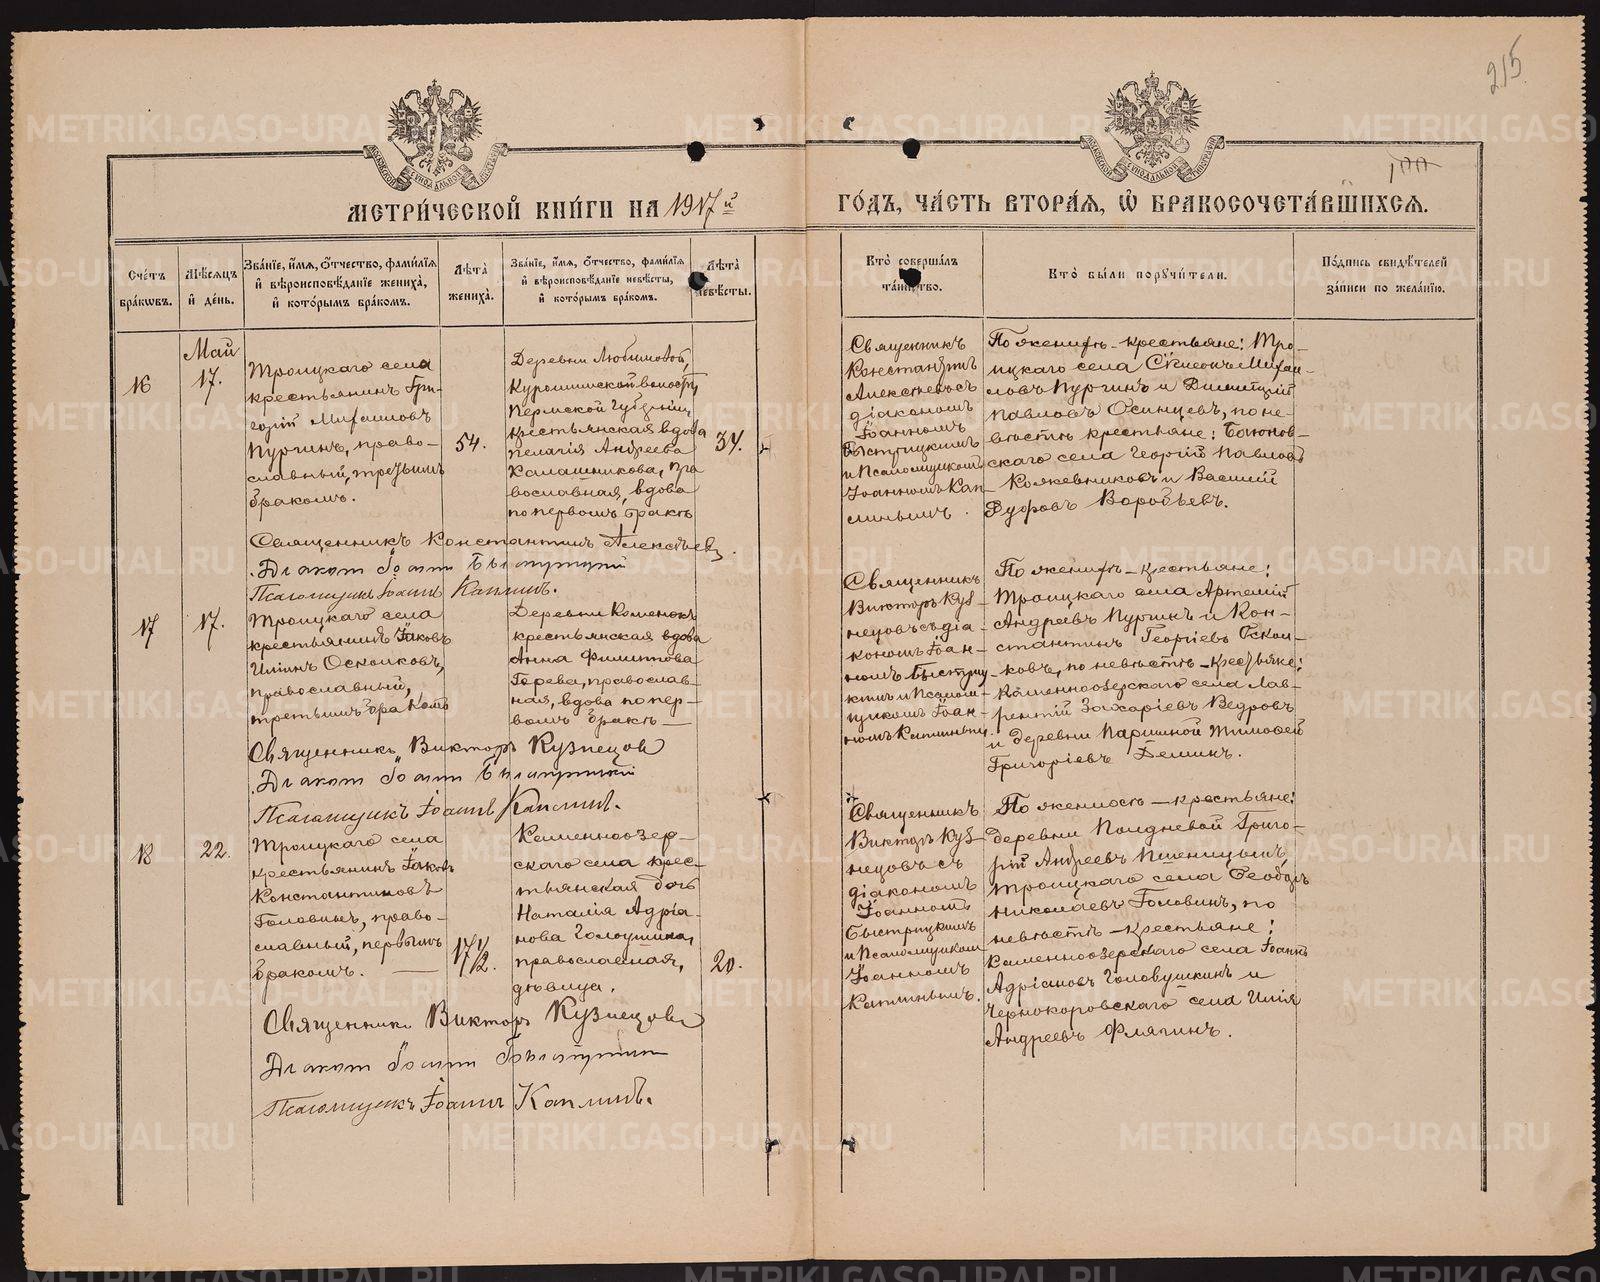 215
МЕТРИ́ЧЕСКОЙ КНИ́ГИ НА 1917й ГО́ДЪ, ЧА́СТЬ ВТОРА́Я, Ѽ БРАКОСОЧЕТА́ВШИХСЯ.
Сче́тъ бра́ковъ.
Мѣ́сяцъ и҆ де́нь.
Зва́нїе, и҆́мя, ѻ҆́тчество, фами́лїѧ и҆ вѣроисповѣ́данїе жениха̀, и҆ кото́рымъ бра́комъ.
Лѣ́та̀ жениха̀.
Зва́нїе, и҆́мя, ѻ҆́тчество, фами́лїѧ и҆ вѣроисповѣ́данїе невѣ́сты, и҆ кото́рымъ бра́комъ.
Лѣ́та̀ невѣ́сты.
Кто̀ соверша́лъ та́инство.
Кто̀ бы́ли поручи́тели.
По́дпись свидѣ́телей за́писи по жела́нїю.
16
Май
17.
Троицкаго села
крестьянинъ Гри-
горій Михаиловъ
Пургинъ, право-
славный, третьимъ
бракомъ.
54.
Деревни Любимовой,
Пермской губерніи,
крестьянская вдова
Пелагія Андреева
Калашникова, пра
вославная, вдова
по первомъ бракѣ
34.
Священникъ
Константинъ
Алексѣевъ съ
діакономъ
Іоанномъ
Быстрицкимъ
и Псаломщикомъ
Іоанномъ Кап-
линымъ.
По женихѣ - крестьяне: Тро-
ицкаго села Стефанъ Михаи-
ловъ Пургинъ и Димитрій
Павловъ Осинцевъ, по не-
вѣстѣ крестьяне:
скаго села Георгій Павловъ
Кожевниковъ и Василій
Воробьевъ.
Священникъ Константинъ Алексѣевъ.
Діаконъ Іоаннъ Быстрицкій
Псаломщикъ Іоаннъ Каплинъ.
17
17.
Троицкаго села
крестьянинъ Іаковъ
Ильинъ Осколковъ,
православный,
третьимъ бракомъ
Деревни Каменокъ
крестьянская вдова
Анна Филиппова
Горева, православ-
ная, вдова по пер-
вомъ бракѣ —
Священникъ
Викторъ Куз-
нецовъ съ діа-
кономъ Іоан-
номъ Быстриц-
кимъ и Псалом-
щикомъ Іоан-
номъ Каплинымъ.
По женихѣ - крестьяне:
Троицкаго села Артемій
Андреевъ Пургинъ и Кон-
стантинъ Георгіевъ Оскол-
ковъ, по невѣстѣ - крестьяне:
Каменноозерскаго села Лав-
рентій Захаріевъ Ведровъ
и деревни Паришной Тимофей
Григоріевъ Деминъ.
Священникъ Викторъ Кузнецовъ
Діаконъ Іоаннъ Быстрицкій
Псаломщикъ Іоаннъ Каплинъ.
18
22.
Троицкаго села
крестьянинъ Іаковъ
Константиновъ
Головинъ, право-
славный, первымъ
бракомъ. —
17 1/2.
Каменноозер-
скаго села крес-
тьянская дочь
Наталія Адріа-
нова
православная,
дѣвица.
20.
Священникъ
Викторъ Куз-
нецовъ съ
діакономъ
Іоанномъ
Быстрицкимъ
и Псаломщикомъ
Іоанномъ
Каплинымъ.
По женихѣ - крестьяне:
деревни Полдневой Григо-
рій Андреевъ Пшеницынъ,
Троицкаго села Ѳеодоръ
Николаевъ Головинъ, по
невѣстѣ - крестьяне:
Каменноозерскаго села Іоаннъ
Адріановъ Головушкинъ и
Чернокоровскаго села Илія
Андреевъ Флягинъ.
Священникъ Викторъ Кузнецовъ
Діаконъ Іоаннъ Быстрицкій
Псаломщикъ Іоаннъ Каплинъ.
METRIKI.GASO-URAL.RU